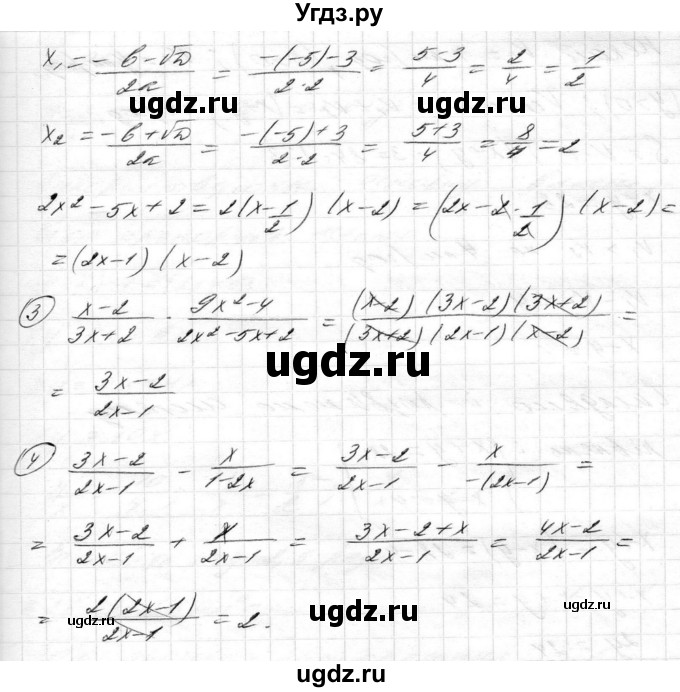 Угдз.ру
x₁ = (-b - √D)/(2a) = (-(-5) - 3)/(2·2) = (5-3)/4 = 2/4 = 1/2
ugdz.ru ugdz.ru
x₂ = (-b + √D)/(2a) = (-(-5) + 3)/(2·2) = (5+3)/4 = 8/4 = 2
2x² - 5x + 2 = 2(x - 1/2)(x - 2) = (2x - 2·1/2)(x - 2) =
= (2x-1)(x-2)
③ (x-2)/(3x+2) · (9x²-4)/(2x²-5x+2) = ((x-2)(3x-2)(3x+2))/((3x+2)(2x-1)(x-2)) =
ugdz.ru
= (3x-2)/(2x-1)
④ (3x-2)/(2x-1) - x/(1-2x) = (3x-2)/(2x-1) - x/(-(2x-1)) =
ugdz.ru ugdz.ru
= (3x-2)/(2x-1) + x/(2x-1) = (3x-2+x)/(2x-1) = (4x-2)/(2x-1) =
ugdz.ru ugdz.ru
= (2(2x-1))/(2x-1) = 2.
ugdz.ru
ugdz.ru